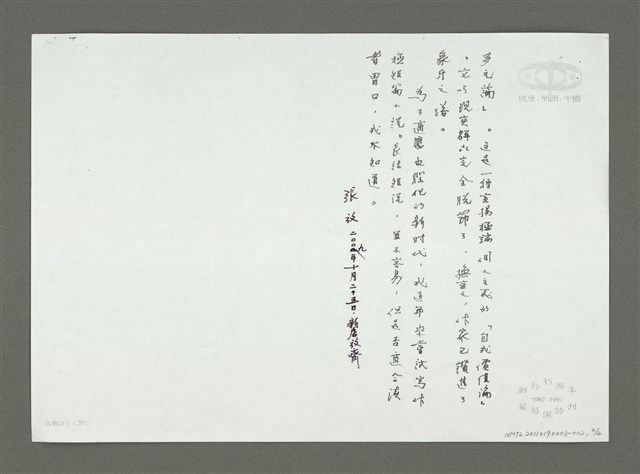 多元論」。這是一種宣揚極端個人主義的「自我價值論」
，它与現實群众完全脱節了，換言之，作家已鑽進了
象牙之塔。
為了適應由縣他的新时代，我近年來嘗試寫作
極短篇小说。長话短说，並不容易，但是否適合读
者胃口，我不知道。
張放
二〇〇九年十月二十五日·新店放齋
民主·明朗·中國
創刊35週年
1962-1997
葡萄園詩刊
NMTL20110190003-002